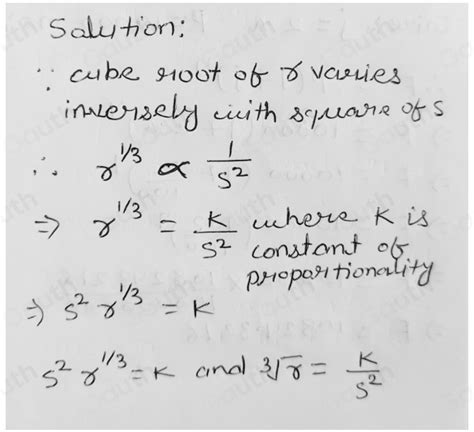 Solution:
∵ cube root of r varies
inversely with square of s
∴ r^1/3 ∝ 1/s²
⇒ r^1/3 = K/s² where K is
constant of
proportionality
⇒ s² r^1/3 = K
s² r^1/3 = K and ∛r = K/s²